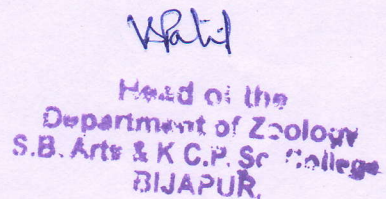 VSPatil
Head of the
Department of Zoology
S.B. Arts & K.C.P. Sc. College
BIJAPUR.